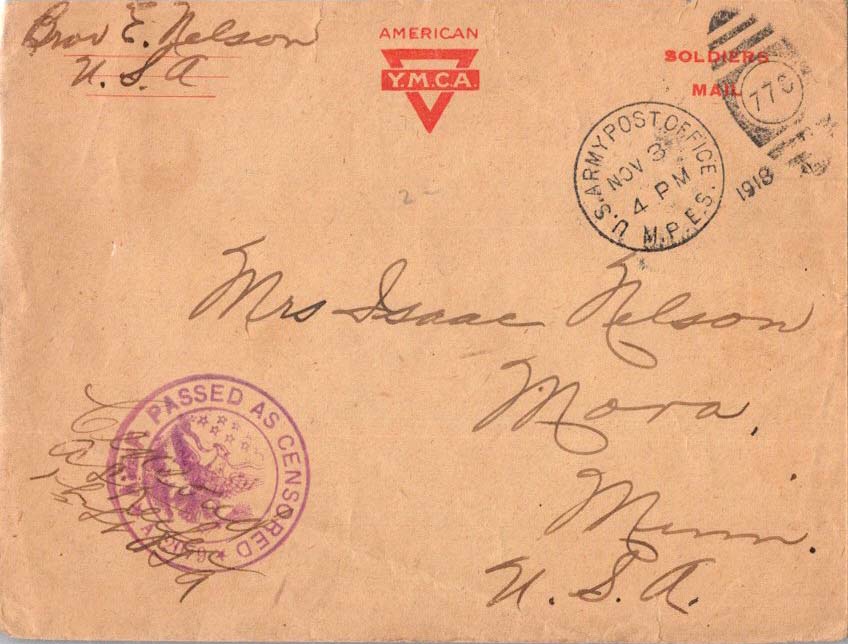 Brov E. Nelson
U.S.A
AMERICAN
Y.M.C.A.
SOLDIERS
MAIL
77C
U.S. ARMY POST OFFICE
NOV 3
4 PM
M.P.E.S.
1918
2-
Mrs Isaac Nelson
Mora,
Minn.
U.S.A.
PASSED AS CENSORED